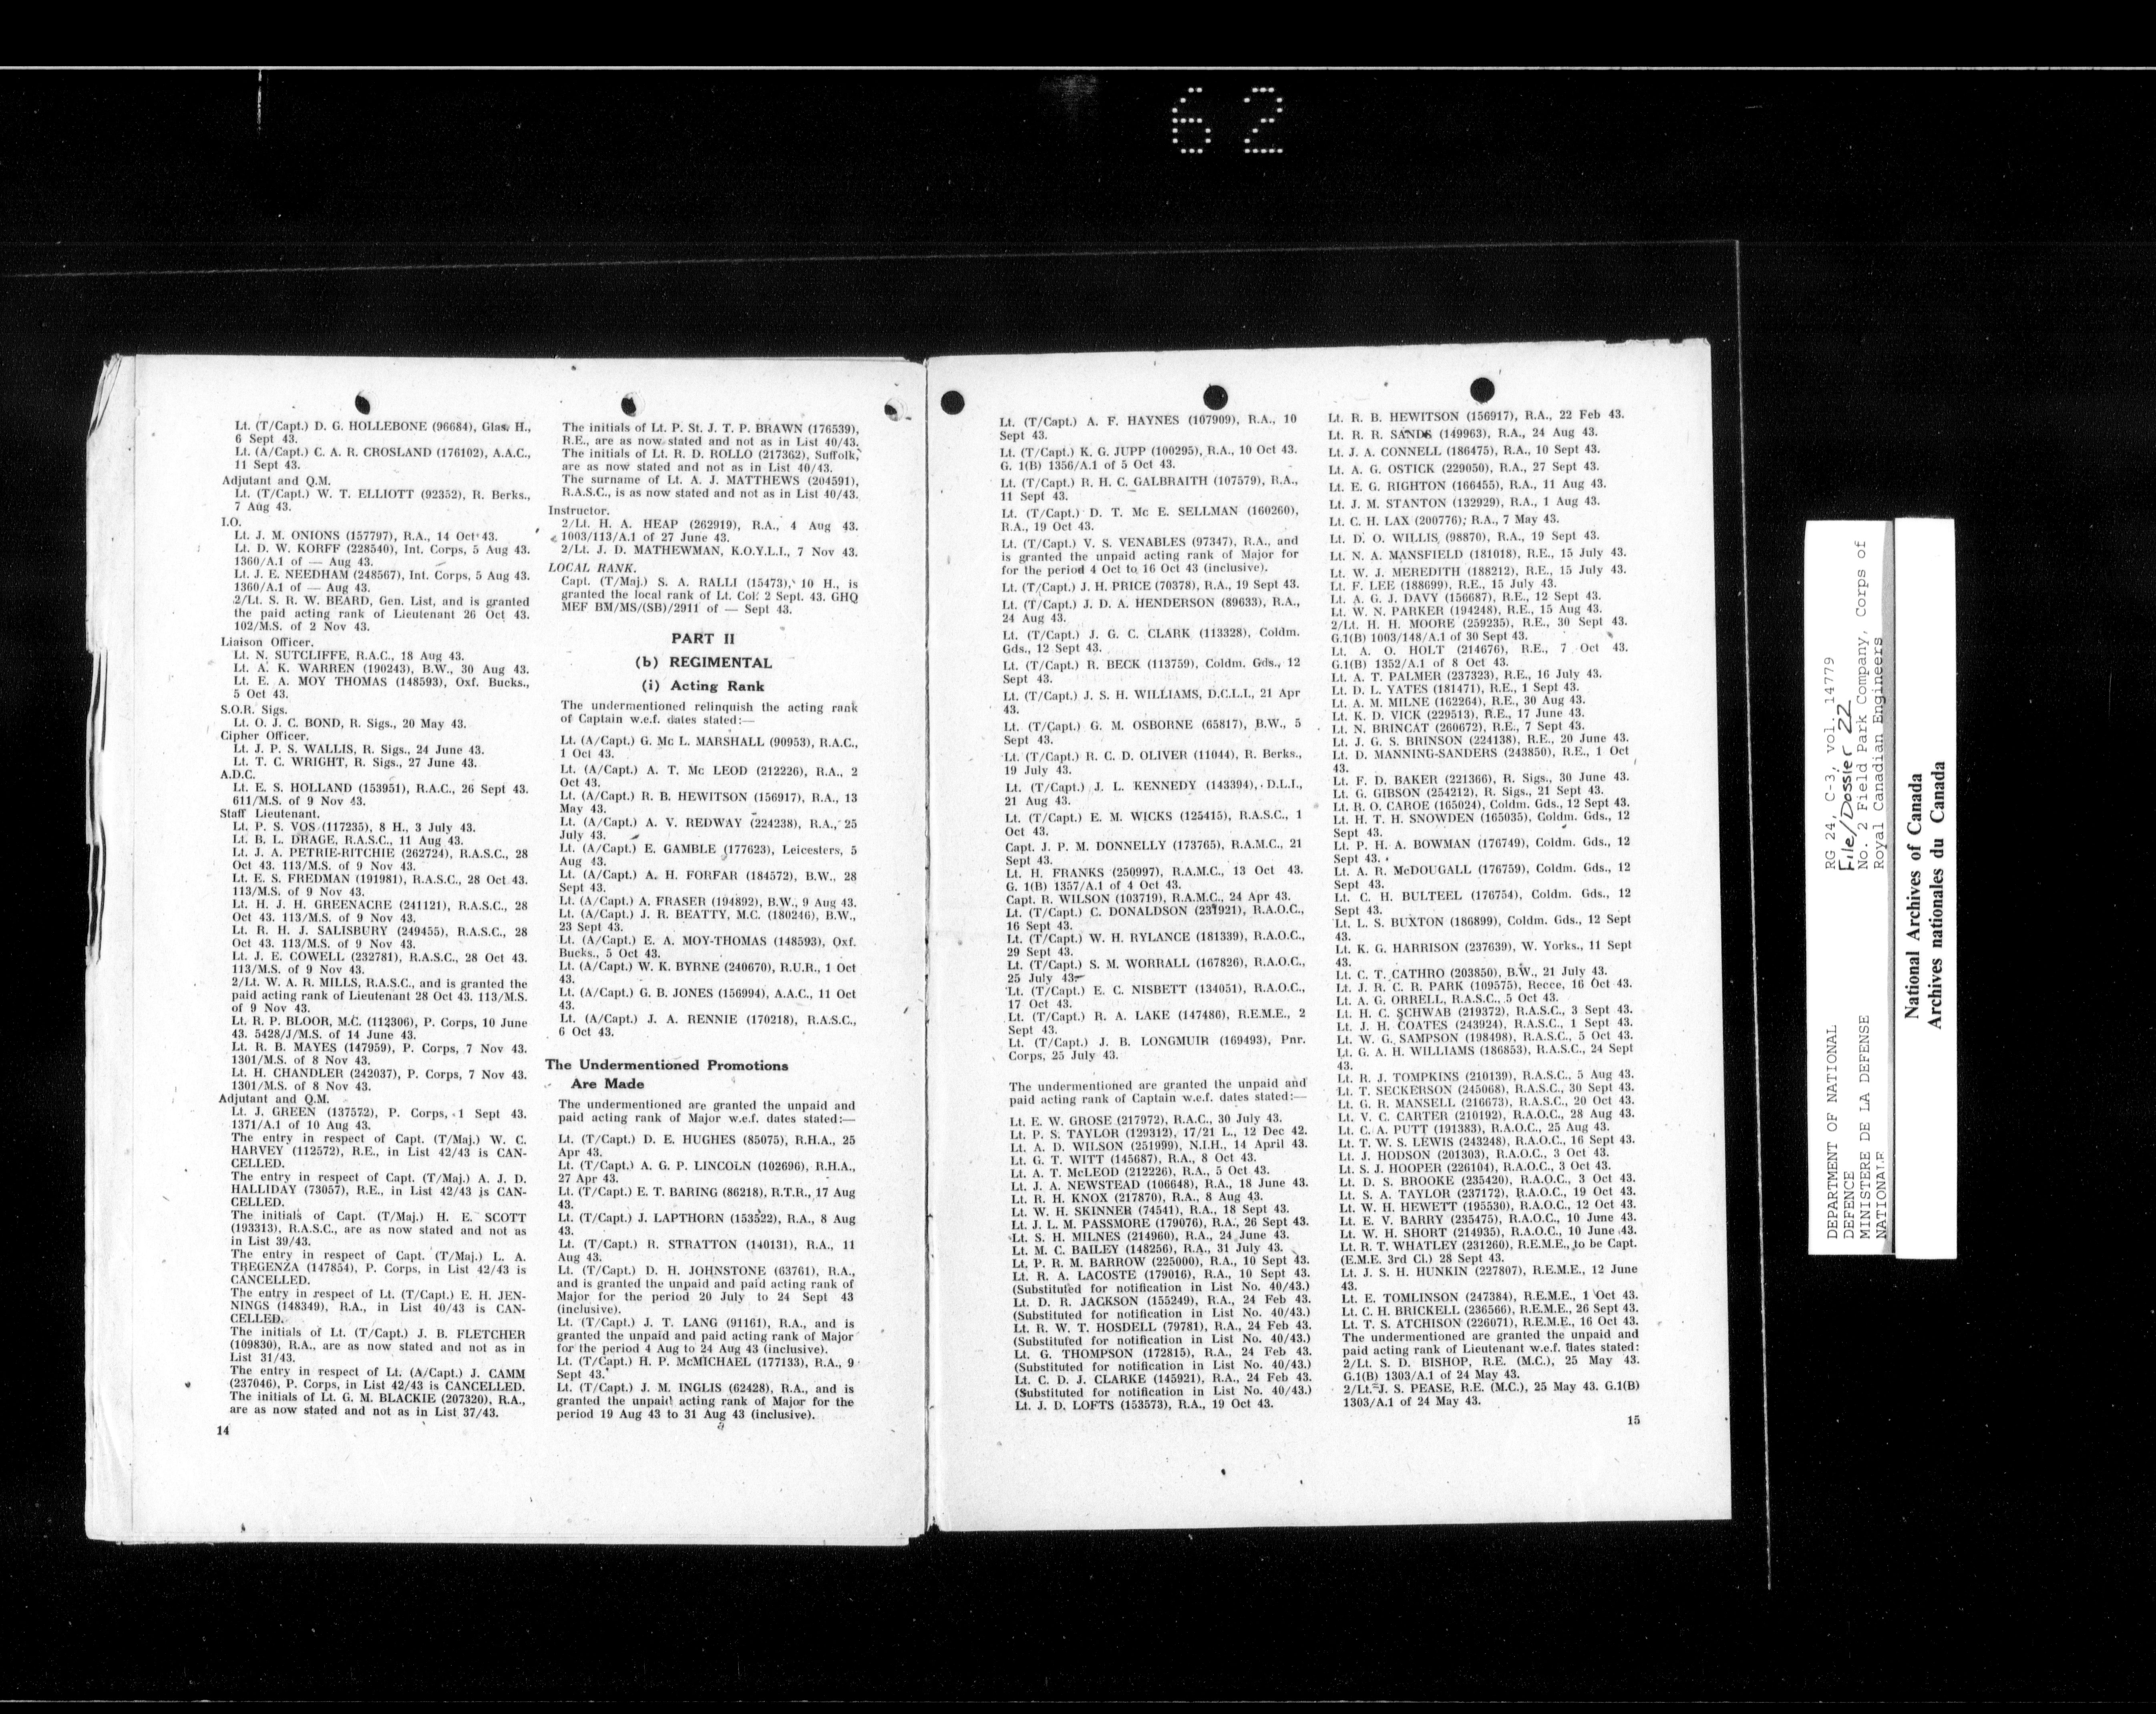 62
Lt. (T/Capt.) D. G. HOLLEBONE (96684), Glas. H.,
6 Sept 43.
Lt. (A/Capt.) C. A. R. CROSLAND (176102), A.A.C.,
11 Sept 43.
Adjutant and Q.M.
Lt. (T/Capt.) W. T. ELLIOTT (92352), R. Berks.,
7 Aug 43.
I.O.
Lt. J. M. ONIONS (157797), R.A., 14 Oct 43.
Lt. D. W. KORFF (228540), Int. Corps, 5 Aug 43.
1360/A.1 of — Aug 43.
Lt. J. E. NEEDHAM (248567), Int. Corps, 5 Aug 43.
1360/A.1 of — Aug 43.
2/Lt. S. R. W. BEARD, Gen. List, and is granted
the paid acting rank of Lieutenant 26 Oct 43.
102/M.S. of 2 Nov 43.
Liaison Officer.
Lt. N. SUTCLIFFE, R.A.C., 18 Aug 43.
Lt. A. K. WARREN (190243), B.W., 30 Aug 43.
Lt. E. A. MOY THOMAS (148593), Oxf. Bucks.,
5 Oct 43.
S.O.R. Sigs.
Lt. O. J. C. BOND, R. Sigs., 20 May 43.
Cipher Officer.
Lt. J. P. S. WALLIS, R. Sigs., 24 June 43.
Lt. T. C. WRIGHT, R. Sigs., 27 June 43.
A.D.C.
Lt. E. S. HOLLAND (153951), R.A.C., 26 Sept 43.
611/M.S. of 9 Nov 43.
Staff Lieutenant.
Lt. P. S. VOS (117235), 8 H., 3 July 43.
Lt. B. L. DRAGE, R.A.S.C., 11 Aug 43.
Lt. J. A. PETRIE-RITCHIE (262724), R.A.S.C., 28
Oct 43. 113/M.S. of 9 Nov 43.
Lt. E. S. FREDMAN (191981), R.A.S.C., 28 Oct 43.
113/M.S. of 9 Nov 43.
Lt. H. J. H. GREENACRE (241121), R.A.S.C., 28
Oct 43. 113/M.S. of 9 Nov 43.
Lt. R. H. J. SALISBURY (249455), R.A.S.C., 28
Oct 43. 113/M.S. of 9 Nov 43.
Lt. J. E. COWELL (232781), R.A.S.C., 28 Oct 43.
113/M.S. of 9 Nov 43.
2/Lt. W. A. R. MILLS, R.A.S.C., and is granted the
paid acting rank of Lieutenant 28 Oct 43. 113/M.S.
of 9 Nov 43.
Lt. R. P. BLOOR, M.C. (112306), P. Corps, 10 June
43. 5428/J/M.S. of 14 June 43.
Lt. R. B. MAYES (147959), P. Corps, 7 Nov 43.
1301/M.S. of 8 Nov 43.
Lt. H. CHANDLER (242037), P. Corps, 7 Nov 43.
1301/M.S. of 8 Nov 43.
Adjutant and Q.M.
Lt. J. GREEN (137572), P. Corps, 1 Sept 43.
1371/A.1 of 10 Aug 43.
The entry in respect of Capt. (T/Maj.) W. C.
HARVEY (112572), R.E., in List 42/43 is CAN-
CELLED.
The entry in respect of Capt. (T/Maj.) A. J. D.
HALLIDAY (73057), R.E., in List 42/43 is CAN-
CELLED.
The initials of Capt. (T/Maj.) H. E. SCOTT
(193313), R.A.S.C., are as now stated and not as
in List 39/43.
The entry in respect of Capt. (T/Maj.) L. A.
TREGENZA (147854), P. Corps, in List 42/43 is
CANCELLED.
The entry in respect of Lt. (T/Capt.) E. H. JEN-
NINGS (148349), R.A., in List 40/43 is CAN-
CELLED.
The initials of Lt. (T/Capt.) J. B. FLETCHER
(109830), R.A., are as now stated and not as in
List 31/43.
The entry in respect of Lt. (A/Capt.) J. CAMM
(237046), P. Corps, in List 42/43 is CANCELLED.
The initials of Lt. G. M. BLACKIE (207320), R.A.,
are as now stated and not as in List 37/43.
14
The initials of Lt. P. St. J. T. P. BRAWN (176539),
R.E., are as now stated and not as in List 40/43.
The initials of Lt. R. D. ROLLO (217362), Suffolk,
are as now stated and not as in List 40/43.
The surname of Lt. A. J. MATTHEWS (204591),
R.A.S.C., is as now stated and not as in List 40/43.
Instructor.
2/Lt. H. A. HEAP (262919), R.A., 4 Aug 43.
1003/113/A.1 of 27 June 43.
2/Lt. J. D. MATHEWMAN, K.O.Y.L.I., 7 Nov 43.
LOCAL RANK.
Capt. (T/Maj.) S. A. RALLI (15473), 10 H., is
granted the local rank of Lt. Col. 2 Sept. 43. GHQ
MEF BM/MS/(SB)/2911 of — Sept 43.
PART II
(b) REGIMENTAL
(i) Acting Rank
The undermentioned relinquish the acting rank
of Captain w.e.f. dates stated:—
Lt. (A/Capt.) G. Mc L. MARSHALL (90953), R.A.C.,
1 Oct 43.
Lt. (A/Capt.) A. T. Mc LEOD (212226), R.A., 2
Oct 43.
Lt. (A/Capt.) R. B. HEWITSON (156917), R.A., 13
May 43.
Lt. (A/Capt.) A. V. REDWAY (224238), R.A., 25
July 43.
Lt. (A/Capt.) E. GAMBLE (177623), Leicesters, 5
Aug 43.
Lt. (A/Capt.) A. H. FORFAR (184572), B.W., 28
Sept 43.
Lt. (A/Capt.) A. FRASER (194892), B.W., 9 Aug 43.
Lt. (A/Capt.) J. R. BEATTY, M.C. (180246), B.W.,
23 Sept 43.
Lt. (A/Capt.) E. A. MOY-THOMAS (148593), Oxf.
Bucks., 5 Oct 43.
Lt. (A/Capt.) W. K. BYRNE (240670), R.U.R., 1 Oct
43.
Lt. (A/Capt.) G. B. JONES (156994), A.A.C., 11 Oct
43.
Lt. (A/Capt.) J. A. RENNIE (170218), R.A.S.C.,
6 Oct 43.
The Undermentioned Promotions
Are Made
The undermentioned are granted the unpaid and
paid acting rank of Major w.e.f. dates stated:—
Lt. (T/Capt.) D. E. HUGHES (85075), R.H.A., 25
Apr 43.
Lt. (T/Capt.) A. G. P. LINCOLN (102696), R.H.A.,
27 Apr 43.
Lt. (T/Capt.) E. T. BARING (86218), R.T.R., 17 Aug
43.
Lt. (T/Capt.) J. LAPTHORN (153522), R.A., 8 Aug
43.
Lt. (T/Capt.) R. STRATTON (140131), R.A., 11
Aug 43.
Lt. (T/Capt.) D. H. JOHNSTONE (63761), R.A.,
and is granted the unpaid and paid acting rank of
Major for the period 20 July to 24 Sept 43
(inclusive).
Lt. (T/Capt.) J. T. LANG (91161), R.A., and is
granted the unpaid and paid acting rank of Major
for the period 4 Aug to 24 Aug 43 (inclusive).
Lt. (T/Capt.) H. P. McMICHAEL (177133), R.A., 9
Sept 43.
Lt. (T/Capt.) J. M. INGLIS (62428), R.A., and is
granted the unpaid acting rank of Major for the
period 19 Aug 43 to 31 Aug 43 (inclusive).
Lt. (T/Capt.) A. F. HAYNES (107909), R.A., 10
Sept 43.
Lt. (T/Capt.) K. G. JUPP (100295), R.A., 10 Oct 43.
G. 1(B) 1356/A.1 of 5 Oct 43.
Lt. (T/Capt.) R. H. C. GALBRAITH (107579), R.A.,
11 Sept 43.
Lt. (T/Capt.) D. T. Mc E. SELLMAN (160260),
R.A., 19 Oct 43.
Lt. (T/Capt.) V. S. VENABLES (97347), R.A., and
is granted the unpaid acting rank of Major for
for the period 4 Oct to 16 Oct 43 (inclusive).
Lt. (T/Capt.) J. H. PRICE (70378), R.A., 19 Sept 43.
Lt. (T/Capt.) J. D. A. HENDERSON (89633), R.A.,
24 Aug 43.
Lt. (T/Capt.) J. G. C. CLARK (113328), Coldm.
Gds., 12 Sept 43.
Lt. (T/Capt.) R. BECK (113759), Coldm. Gds., 12
Sept 43.
Lt. (T/Capt.) J. S. H. WILLIAMS, D.C.L.I., 21 Apr
43.
Lt. (T/Capt.) G. M. OSBORNE (65817), B.W., 5
Sept 43.
Lt. (T/Capt.) R. C. D. OLIVER (11044), R. Berks.,
19 July 43.
Lt. (T/Capt.) J. L. KENNEDY (143394), D.L.I.,
21 Aug 43.
Lt. (T/Capt.) E. M. WICKS (125415), R.A.S.C., 1
Oct 43.
Capt. J. P. M. DONNELLY (173765), R.A.M.C., 21
Sept 43.
Lt. H. FRANKS (250997), R.A.M.C., 13 Oct 43.
G. 1(B) 1357/A.1 of 4 Oct 43.
Capt. R. WILSON (103719), R.A.M.C., 24 Apr 43.
Lt. (T/Capt.) C. DONALDSON (231921), R.A.O.C.,
16 Sept 43.
Lt. (T/Capt.) W. H. RYLANCE (181339), R.A.O.C.,
29 Sept 43.
Lt. (T/Capt.) S. M. WORRALL (167826), R.A.O.C.,
25 July 43.
Lt. (T/Capt.) E. C. NISBETT (134051), R.A.O.C.,
17 Oct 43.
Lt. (T/Capt.) R. A. LAKE (147486), R.E.M.E., 2
Sept 43.
Lt. (T/Capt.) J. B. LONGMUIR (169493), Pnr.
Corps, 25 July 43.
The undermentioned are granted the unpaid and
paid acting rank of Captain w.e.f. dates stated:—
Lt. E. W. GROSE (217972), R.A.C., 30 July 43.
Lt. P. S. TAYLOR (129312), 17/21 L., 12 Dec 42.
Lt. A. D. WILSON (251999), N.I.H., 14 April 43.
Lt. G. T. WITT (145687), R.A., 8 Oct 43.
Lt. A. T. McLEOD (212226), R.A., 5 Oct 43.
Lt. J. A. NEWSTEAD (106648), R.A., 18 June 43.
Lt. R. H. KNOX (217870), R.A., 8 Aug 43.
Lt. W. H. SKINNER (74541), R.A., 18 Sept 43.
Lt. J. L. M. PASSMORE (179076), R.A., 26 Sept 43.
Lt. S. H. MILNES (214960), R.A., 24 June 43.
Lt. M. C. BAILEY (148256), R.A., 31 July 43.
Lt. P. R. M. BARROW (225000), R.A., 10 Sept 43.
Lt. R. A. LACOSTE (179016), R.A., 10 Sept 43.
(Substituted for notification in List No. 40/43.)
Lt. D. R. JACKSON (155249), R.A., 24 Feb 43.
(Substituted for notification in List No. 40/43.)
Lt. R. W. T. HOSDELL (79781), R.A., 24 Feb 43.
(Substituted for notification in List No. 40/43.)
Lt. G. THOMPSON (172815), R.A., 24 Feb 43.
(Substituted for notification in List No. 40/43.)
Lt. C. D. J. CLARKE (145921), R.A., 24 Feb 43.
(Substituted for notification in List No. 40/43.)
Lt. J. D. LOFTS (153573), R.A., 19 Oct 43.
Lt. R. B. HEWITSON (156917), R.A., 22 Feb 43.
Lt. R. R. SANDS (149963), R.A., 24 Aug 43.
Lt. J. A. CONNELL (186475), R.A., 10 Sept 43.
Lt. A. G. OSTICK (229050), R.A., 27 Sept 43.
Lt. E. G. RIGHTON (166455), R.A., 11 Aug 43.
Lt. J. M. STANTON (132929), R.A., 1 Aug 43.
Lt. C. H. LAX (200776), R.A., 7 May 43.
Lt. D. O. WILLIS (98870), R.A., 19 Sept 43.
Lt. N. A. MANSFIELD (181018), R.E., 15 July 43.
Lt. W. J. MEREDITH (188212), R.E., 15 July 43.
Lt. F. LEE (188699), R.E., 15 July 43.
Lt. A. G. J. DAVY (156687), R.E., 12 Sept 43.
Lt. W. N. PARKER (194248), R.E., 15 Aug 43.
2/Lt. H. H. MOORE (259235), R.E., 30 Sept 43.
G.1(B) 1003/148/A.1 of 30 Sept 43.
Lt. A. O. HOLT (214676), R.E., 7 Oct 43.
G.1(B) 1352/A.1 of 8 Oct 43.
Lt. A. T. PALMER (237323), R.E., 16 July 43.
Lt. D. L. YATES (181471), R.E., 1 Sept 43.
Lt. A. M. MILNE (162264), R.E., 30 Aug 43.
Lt. K. D. VICK (229513), R.E., 17 June 43.
Lt. N. BRINCAT (260672), R.E., 7 Sept 43.
Lt. J. G. S. BRINSON (224138), R.E., 20 June 43.
Lt. D. MANNING-SANDERS (243850), R.E., 1 Oct
43.
Lt. F. D. BAKER (221366), R. Sigs., 30 June 43.
Lt. G. GIBSON (254212), R. Sigs., 21 Sept 43.
Lt. R. O. CAROE (165024), Coldm. Gds., 12 Sept 43.
Lt. H. T. H. SNOWDEN (165035), Coldm. Gds., 12
Sept 43.
Lt. P. H. A. BOWMAN (176749), Coldm. Gds., 12
Sept 43.
Lt. A. R. McDOUGALL (176759), Coldm. Gds., 12
Sept 43.
Lt. C. H. BULTEEL (176754), Coldm. Gds., 12
Sept 43.
Lt. L. S. BUXTON (186899), Coldm. Gds., 12 Sept
43.
Lt. K. G. HARRISON (237639), W. Yorks., 11 Sept
43.
Lt. C. T. CATHRO (203850), B.W., 21 July 43.
Lt. J. R. C. R. PARK (109575), Recce, 16 Oct 43.
Lt. A. G. ORRELL, R.A.S.C., 5 Oct 43.
Lt. H. C. SCHWAB (219372), R.A.S.C., 3 Sept 43.
Lt. J. H. COATES (243924), R.A.S.C., 1 Sept 43.
Lt. W. G. SAMPSON (198498), R.A.S.C., 5 Oct 43.
Lt. G. A. H. WILLIAMS (186853), R.A.S.C., 24 Sept
43.
Lt. R. J. TOMPKINS (210139), R.A.S.C., 5 Aug 43.
Lt. T. SECKERSON (245068), R.A.S.C., 30 Sept 43.
Lt. G. R. MANSELL (216673), R.A.S.C., 20 Oct 43.
Lt. V. C. CARTER (210192), R.A.O.C., 28 Aug 43.
Lt. C. A. PUTT (191383), R.A.O.C., 25 Aug 43.
Lt. T. W. S. LEWIS (243248), R.A.O.C., 16 Sept 43.
Lt. J. HODSON (201303), R.A.O.C., 3 Oct 43.
Lt. S. J. HOOPER (226104), R.A.O.C., 3 Oct 43.
Lt. D. S. BROOKE (235420), R.A.O.C., 3 Oct 43.
Lt. S. A. TAYLOR (237172), R.A.O.C., 19 Oct 43.
Lt. W. H. HEWETT (195530), R.A.O.C., 12 Oct 43.
Lt. E. V. BARRY (235475), R.A.O.C., 10 June 43.
Lt. W. H. SHORT (214935), R.A.O.C., 10 June 43.
Lt. R. T. WHATLEY (231260), R.E.M.E., to be Capt.
(E.M.E. 3rd Cl.) 28 Sept 43.
Lt. J. S. H. HUNKIN (227807), R.E.M.E., 12 June
43.
Lt. E. TOMLINSON (247384), R.E.M.E., 1 Oct 43.
Lt. C. H. BRICKELL (236566), R.E.M.E., 26 Sept 43.
Lt. T. S. ATCHISON (226071), R.E.M.E., 16 Oct 43.
The undermentioned are granted the unpaid and
paid acting rank of Lieutenant w.e.f. dates stated:
2/Lt. S. D. BISHOP, R.E. (M.C.), 25 May 43.
G.1(B) 1303/A.1 of 24 May 43.
2/Lt. J. S. PEASE, R.E. (M.C.), 25 May 43. G.1(B)
1303/A.1 of 24 May 43.
15
DEPARTMENT OF NATIONAL
DEFENCE
MINISTERE DE LA DEFENSE
NATIONALE
RG 24, C-3, vol. 14779
File/Dossier 22
No. 2 Field Park Company, Corps of
Royal Canadian Engineers
National Archives of Canada
Archives nationales du Canada